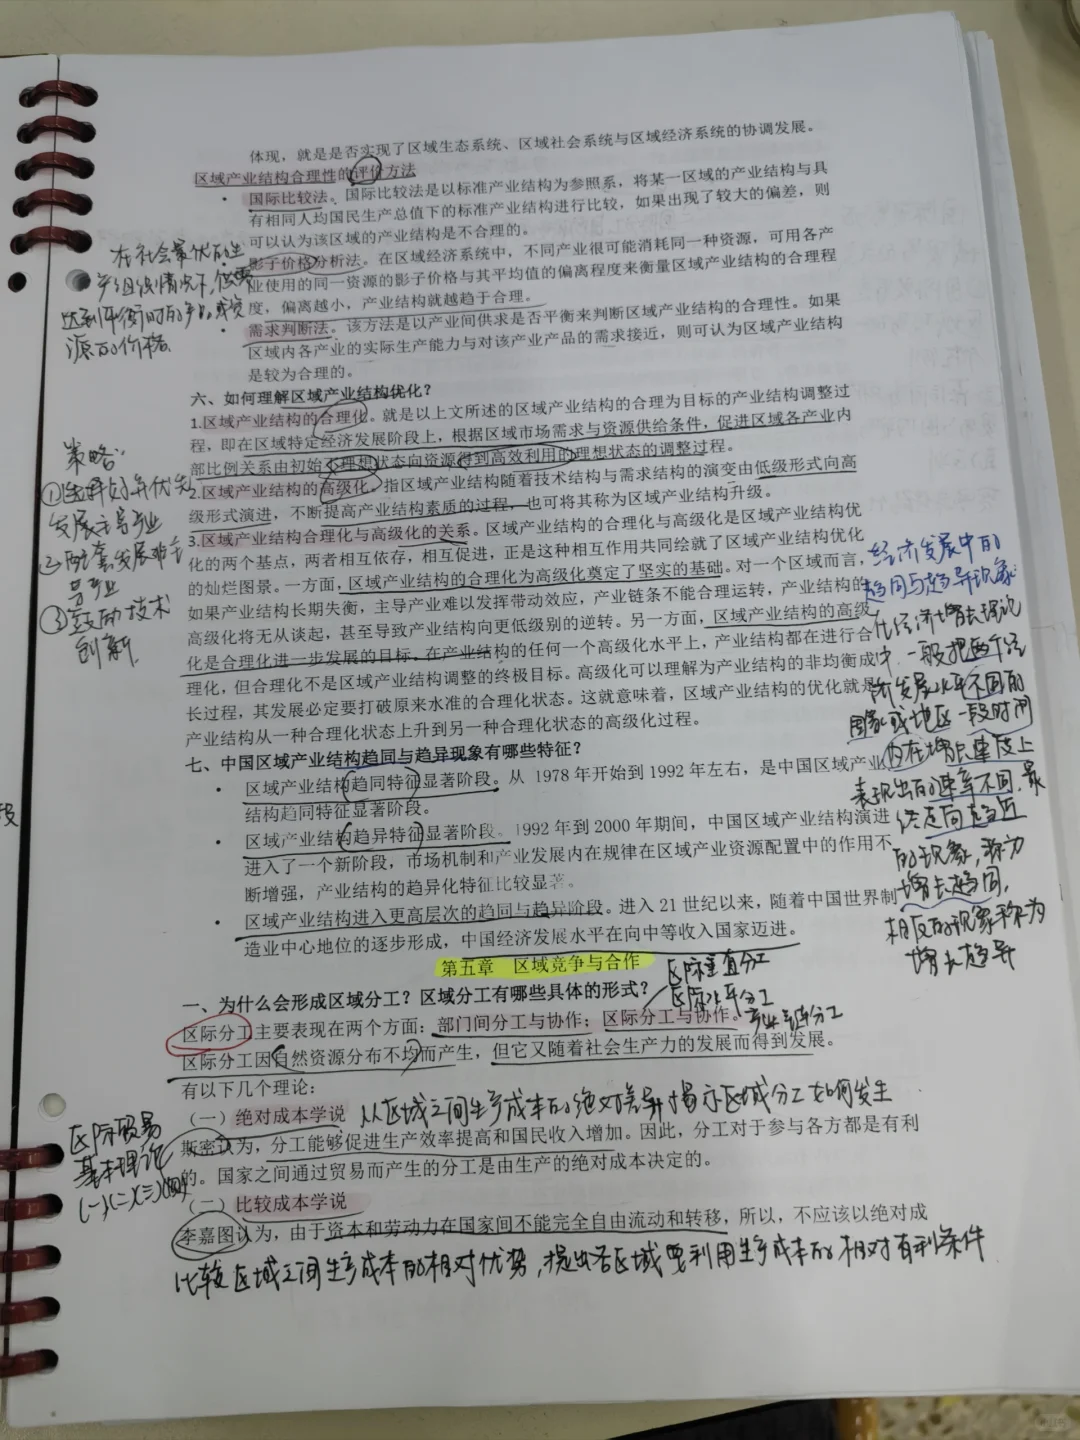 体现，就是是否实现了区域生态系统、区域社会系统与区域经济系统的协调发展。
区域产业结构合理性的评价方法
• 国际比较法。国际比较法是以标准产业结构为参照系，将某一区域的产业结构与具
有相同人均国民生产总值下的标准产业结构进行比较，如果出现了较大的偏差，则
可以认为该区域的产业结构是不合理的。
影子价格分析法。在区域经济系统中，不同产业很可能消耗同一种资源，可用各产
业使用的同一资源的影子价格与其平均值的偏离程度来衡量区域产业结构的合理程
度，偏离越小，产业结构就越趋于合理。
• 需求判断法。该方法是以产业间供求是否平衡来判断区域产业结构的合理性。如果
区域内各产业的实际生产能力与对该产业产品的需求接近，则可认为区域产业结构
是较为合理的。
在社会最优的生
产组织情况下，供需
达到平衡时的产品或资
源的价格
六、如何理解区域产业结构优化？
1.区域产业结构的合理化。就是以上文所述的区域产业结构的合理为目标的产业结构调整过
程，即在区域特定经济发展阶段上，根据区域市场需求与资源供给条件，促进区域各产业内
部比例关系由初始不理想状态向资源得到高效利用的理想状态的调整过程。
2.区域产业结构的高级化。指区域产业结构随着技术结构与需求结构的演变由低级形式向高
级形式演进，不断提高产业结构素质的过程，也可将其称为区域产业结构升级。
3.区域产业结构合理化与高级化的关系。区域产业结构的合理化与高级化是区域产业结构优
化的两个基点，两者相互依存，相互促进，正是这种相互作用共同绘就了区域产业结构优化
的灿烂图景。一方面，区域产业结构的合理化为高级化奠定了坚实的基础。对一个区域而言，
如果产业结构长期失衡，主导产业难以发挥带动效应，产业链条不能合理运转，产业结构的
高级化将无从谈起，甚至导致产业结构向更低级别的逆转。另一方面，区域产业结构的高级
化是合理化进一步发展的目标。在产业结构的任何一个高级化水平上，产业结构都在进行合
理化，但合理化不是区域产业结构调整的终极目标。高级化可以理解为产业结构的非均衡成
长过程，其发展必定要打破原来水准的合理化状态。这就意味着，区域产业结构的优化就是
产业结构从一种合理化状态上升到另一种合理化状态的高级化过程。
策略：
①选择好并优先
发展主导产业
②配套发展非主
导产业
③鼓励技术
创新
七、中国区域产业结构趋同与趋异现象有哪些特征？
• 区域产业结构趋同特征显著阶段。从 1978 年开始到 1992 年左右，是中国区域产业
结构趋同特征显著阶段。
• 区域产业结构趋异特征显著阶段。1992 年到 2000 年期间，中国区域产业结构演进
进入了一个新阶段，市场机制和产业发展内在规律在区域产业资源配置中的作用不
断增强，产业结构的趋异化特征比较显著。
• 区域产业结构进入更高层次的趋同与趋异阶段。进入 21 世纪以来，随着中国世界制
造业中心地位的逐步形成，中国经济发展水平在向中等收入国家迈进。
经济发展中的
趋同与趋异现象：
在经济增长理论
中，一般把两个经
济发展水平不同的
国家或地区一段时间
内在增长速度上
表现出的速率不同，最
终走向趋近
的现象，称为
增长趋同，
相反的现象称为
增长趋异
第五章 区域竞争与合作
一、为什么会形成区域分工？区域分工有哪些具体的形式？
区际垂直分工
区际水平分工
区际分工主要表现在两个方面：部门间分工与协作；区际分工与协作。
区际分工因自然资源分布不均而产生，但它又随着社会生产力的发展而得到发展。
有以下几个理论：
（一）绝对成本学说 从区域之间生产成本的绝对差异揭示区域分工如何发生
斯密认为，分工能够促进生产效率提高和国民收入增加。因此，分工对于参与各方都是有利
的。国家之间通过贸易而产生的分工是由生产的绝对成本决定的。
区际贸易
基本理论
(一)(二)(三)(四)
（二）比较成本学说
李嘉图认为，由于资本和劳动力在国家间不能完全自由流动和转移，所以，不应该以绝对成
比较区域之间生产成本的相对优势，提出各区域要利用生产成本的相对有利条件